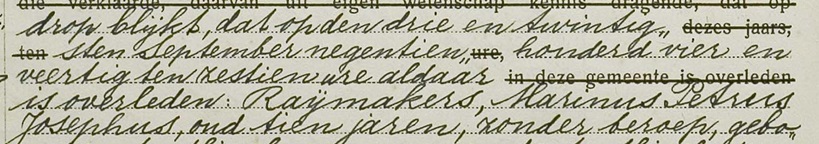 die verklaarde, daarvan uit eigen wetenschap kennis dragende, dat op
drop blijkt, dat op den drie en twintig„ dezes jaars,
ten sten September negentien„ure, honderd vier en
veertig ten zestien ure aldaar in deze gemeente is overleden
is overleden: Raÿmakers, Marinus Petrus
Josephus, oud tien jaren, zonder beroep, gebo„